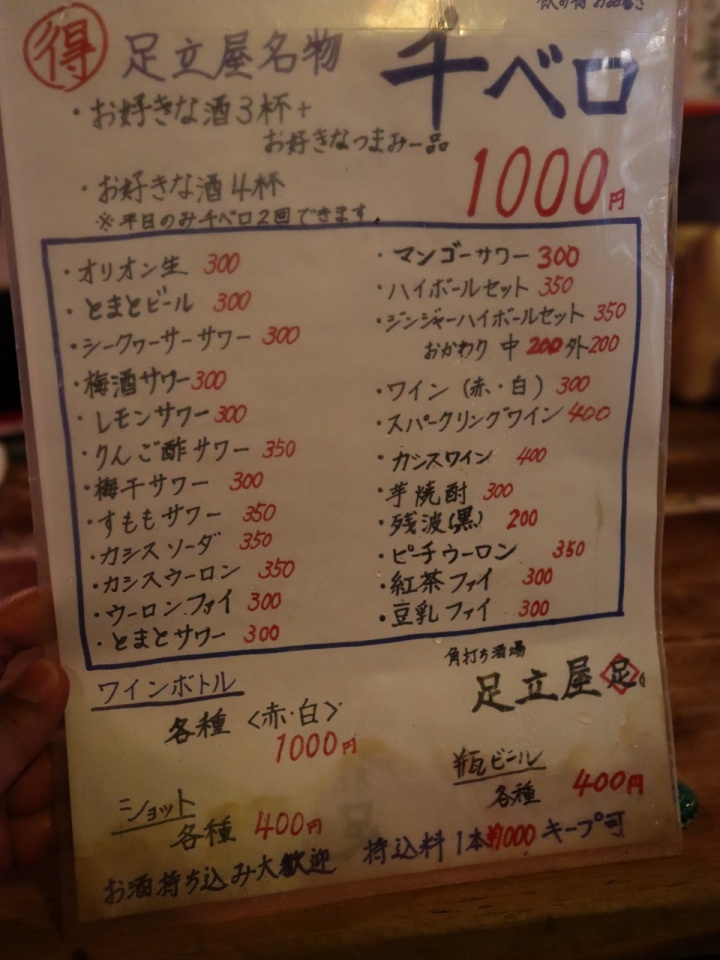 得 足立屋名物 千ベロ
・お好きな酒3杯+
お好きなつまみ一品
・お好きな酒4杯
1000円
※平日のみ千ベロ2回できます。
・オリオン生 300
・とまとビール 300
・シークヮーサーサワー 300
・梅酒サワー 300
・レモンサワー 300
・りんご酢サワー 350
・梅干サワー 300
・すももサワー 350
・カシスソーダ 350
・カシスウーロン 350
・ウーロンファイ 300
・とまとサワー 300
・マンゴーサワー 300
・ハイボールセット 350
・ジンジャーハイボールセット 350
おかわり 中200 外200
・ワイン(赤・白) 300
・スパークリングワイン 400
・カシスワイン 400
・芋焼酎 300
・残波(黒) 200
・ピーチウーロン 350
・紅茶ファイ 300
・豆乳ファイ 300
角打ち酒場
足立屋 足
ワインボトル
各種〈赤・白〉
1000円
瓶ビール
各種 400円
ショット
各種 400円
お酒持ち込み大歓迎 持込料1本¥1000 キープ可